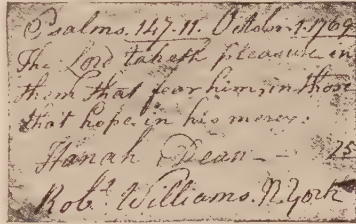 Psalms. 147-11. Octobr. 1. 1769
The Lord taketh pleasure in
them that fear him, in those
that hope in his mercy.
Hanah Dean - - 75
Robt. Williams. N. York